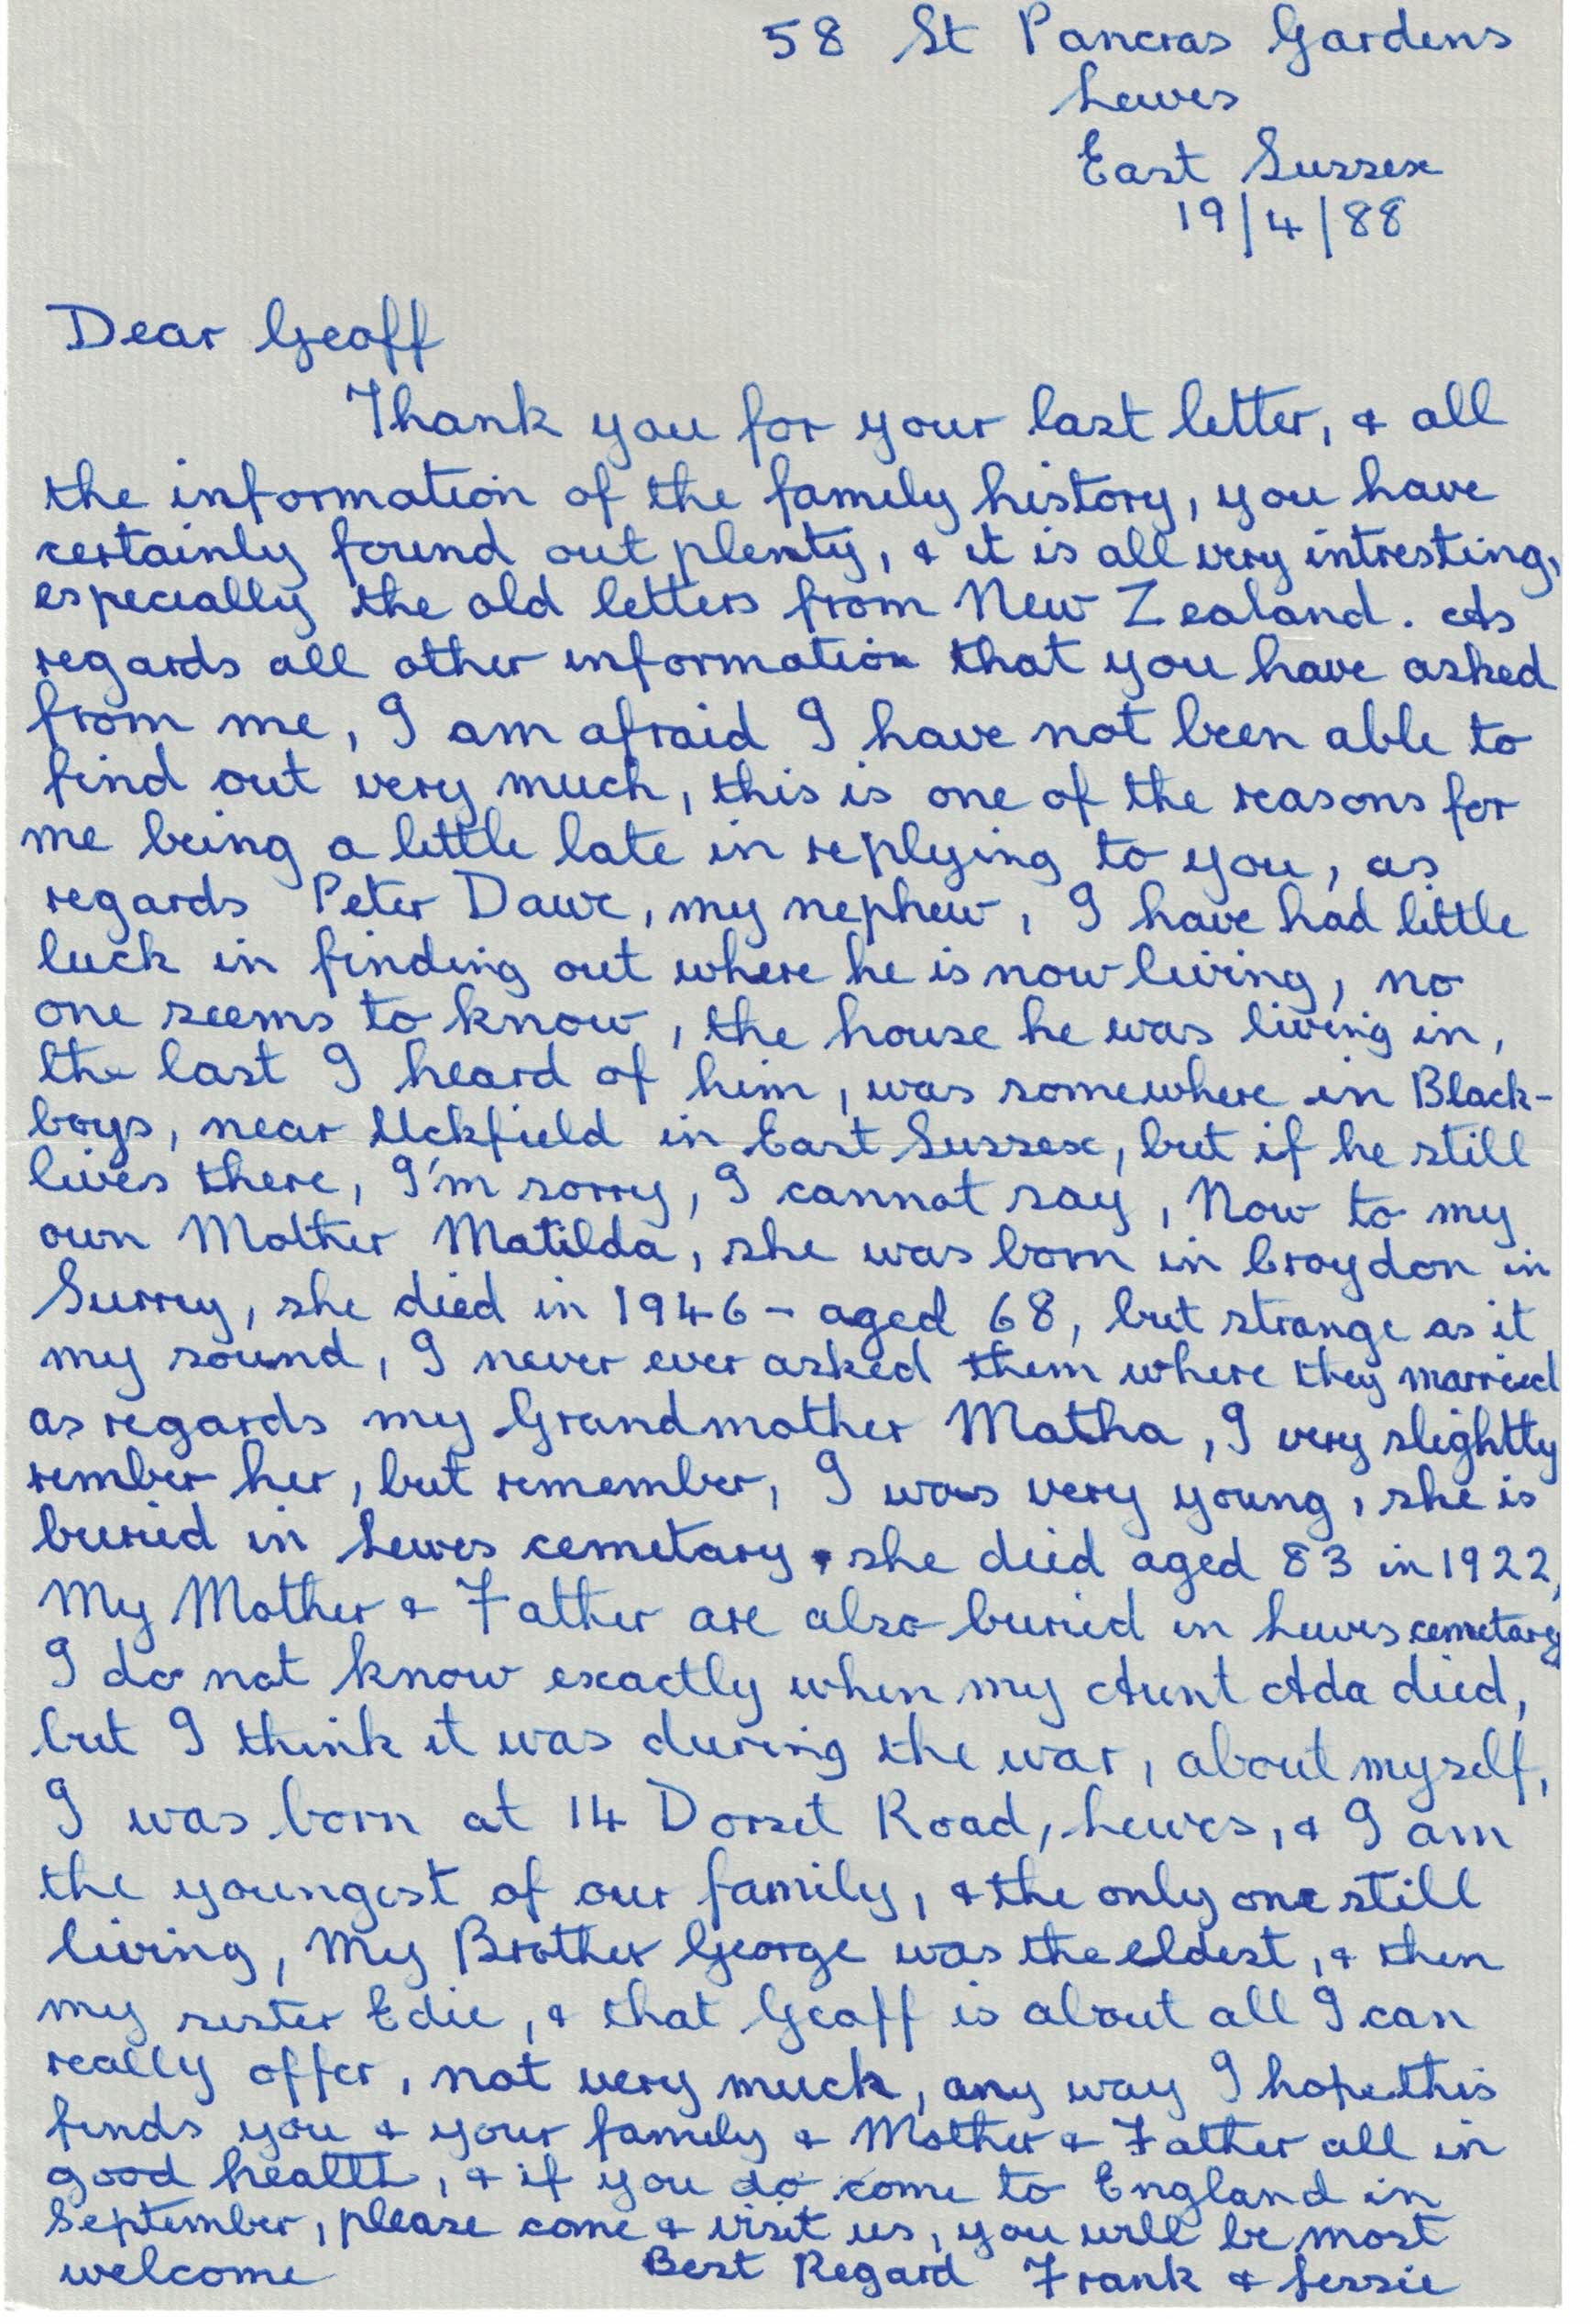 58 St Pancras Gardens
Lewes
East Sussex
19/4/88
Dear Geoff
Thank you for your last letter, & all
the information of the family history, you have
certainly found out plenty, & it is all very intresting,
especially the old letters from New Zealand. As
regards all other information that you have asked
from me, I am afraid I have not been able to
find out very much, this is one of the reasons for
me being a little late in replying to you, as
regards Peter Dawe, my nephew, I have had little
luck in finding out where he is now living, no
one seems to know, the house he was living in,
the last I heard of him, was somewhere in Black-
boys, near Uckfield in East Sussex, but if he still
lives there, I'm sorry, I cannot say, Now to my
own Mother Matilda, she was born in Croydon in
Surrey, she died in 1946 - aged 68, but strange as it
my sound, I never ever asked them where they married
as regards my Grandmother Matha, I very slightly
rember her, but remember, I was very young, she is
buried in Lewes cemetary, she died aged 83 in 1922,
My Mother & Father are also buried in Lewes cemetary
I do not know exactly when my Aunt Ada died,
but I think it was during the war, about myself,
I was born at 14 Dorset Road, Lewes, & I am
the youngest of our family, & the only one still
living, My Brother George was the eldest, & then
my sister Edie, & that Geoff is about all I can
really offer, not very much, any way I hope this
finds you & your family & Mother & Father all in
good health, & if you do come to England in
September, please come & visit us, you will be most
welcome Best Regard Frank & Jessie